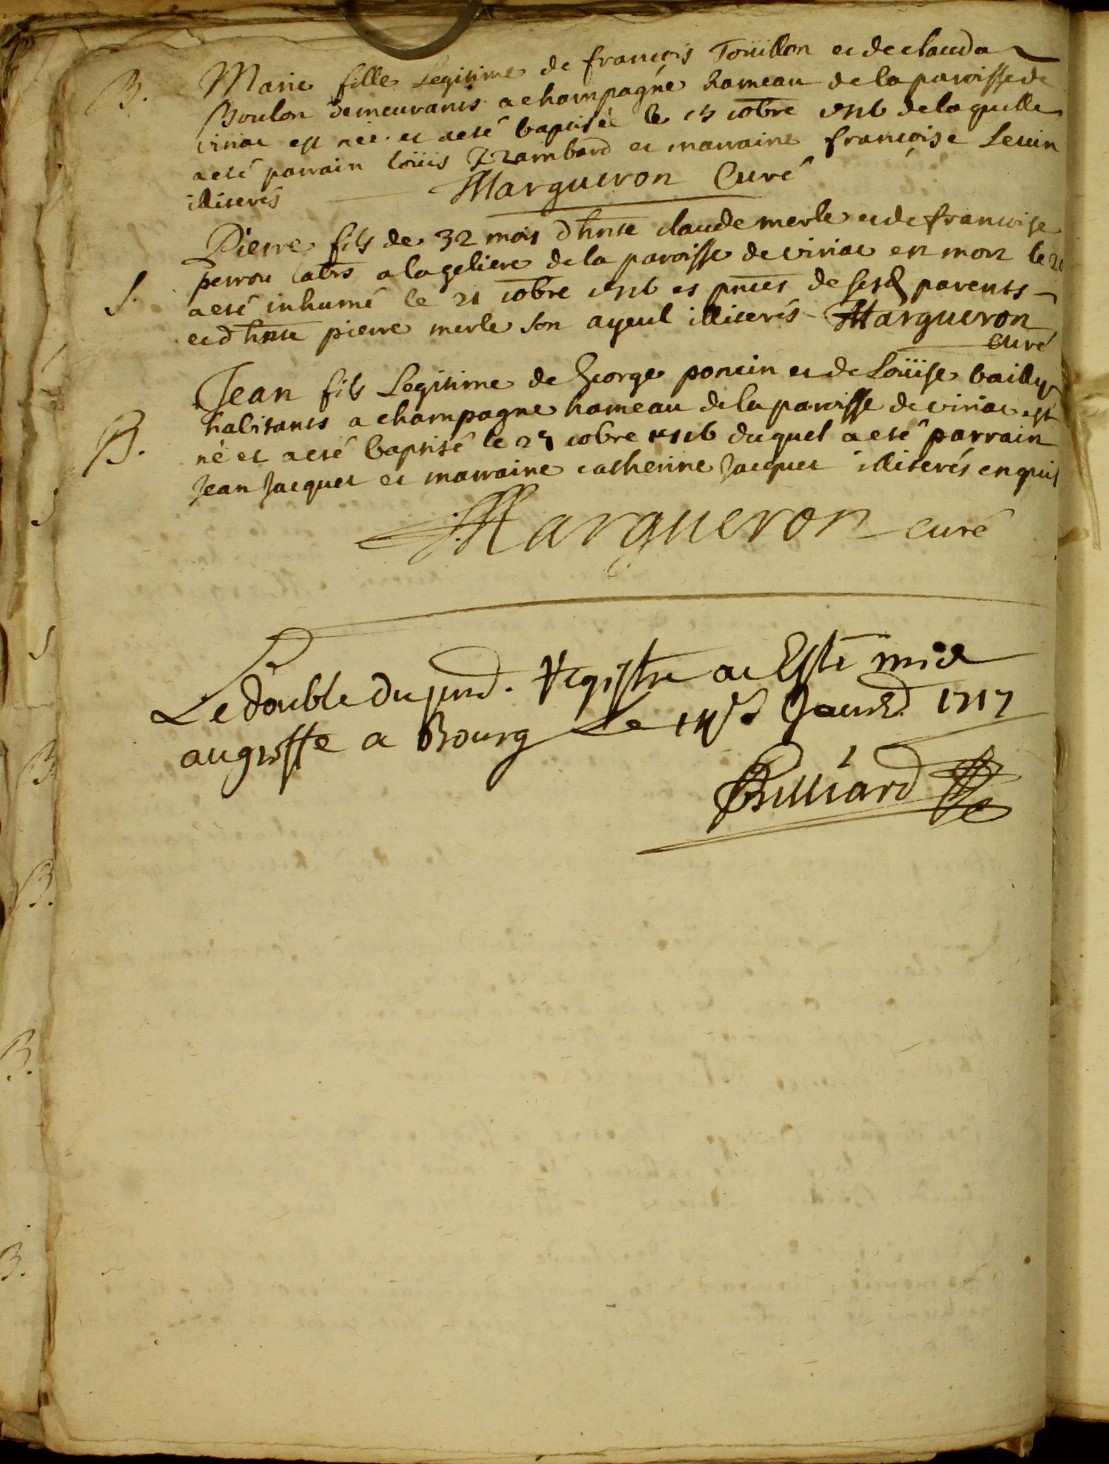 B. Marie fille Legitime de françois Toüillon et de clauda
Boulon demeurants a champagne hameau de la paroisse de
viriac est née et a eté baptisée le 15 xobre 1716 de laquelle
a eté parrain loüis Rambard et marraine françoise Levin
illiterés Margueron Curé
Pierre fils de 32 mois d'hnte claude merle et de francoise
perrou a la geliere de la paroisse de viriac en mort le
S. a eté inhumé le 21 xobre 1716 es pnces de parents
et d'hnte pierre merle son ayeul illiterés Margueron
curé
Jean fils Legitime de George poncin et de Loüise bailly
habitants a champagne hameau de la paroisse de viriac est
B. né et a eté baptisé le 27 xobre 1716 duquel a eté parrain
Jean Jacquet et marraine catherine Jacquet illiterés enquis
Margueron curé
Le double du pnd. Registre a Esté mis
au greffe a Bourg Le 1717
Billiard
S
S
B
B.
B.
B.